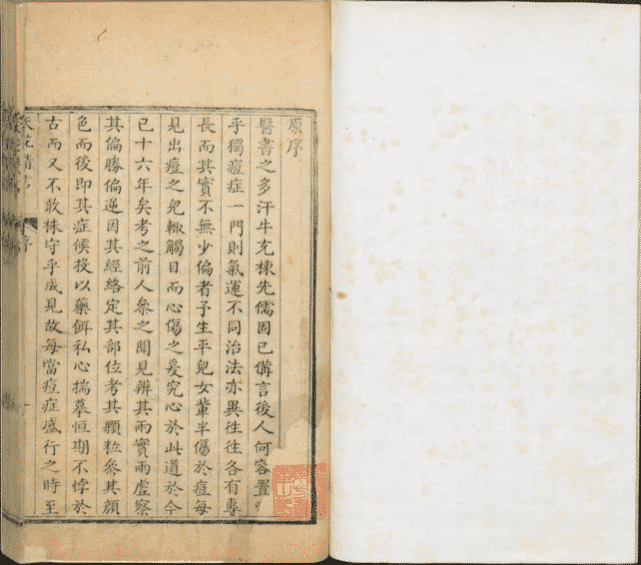 原序
醫書之多汗牛充棟先儒固已備言後人何容置
乎獨痘症一門則氣運不同治法亦異徃徃各有專
長而其實不無少偏者予生平兒女軰半傷於痘每
見出痘之兒輙觸目而心傷之爰究心於此道於今
已十六年矣考之前人叅之聞見辨其兩實兩虛察
其偏勝偏逆因其經絡定其部位考其顆粒叅其顔
色而後即其症候投以藥餌私心揣摹恒期不悖於
古而又不敢株守乎成見故每當痘症盛行之時至
天花精言
序
一